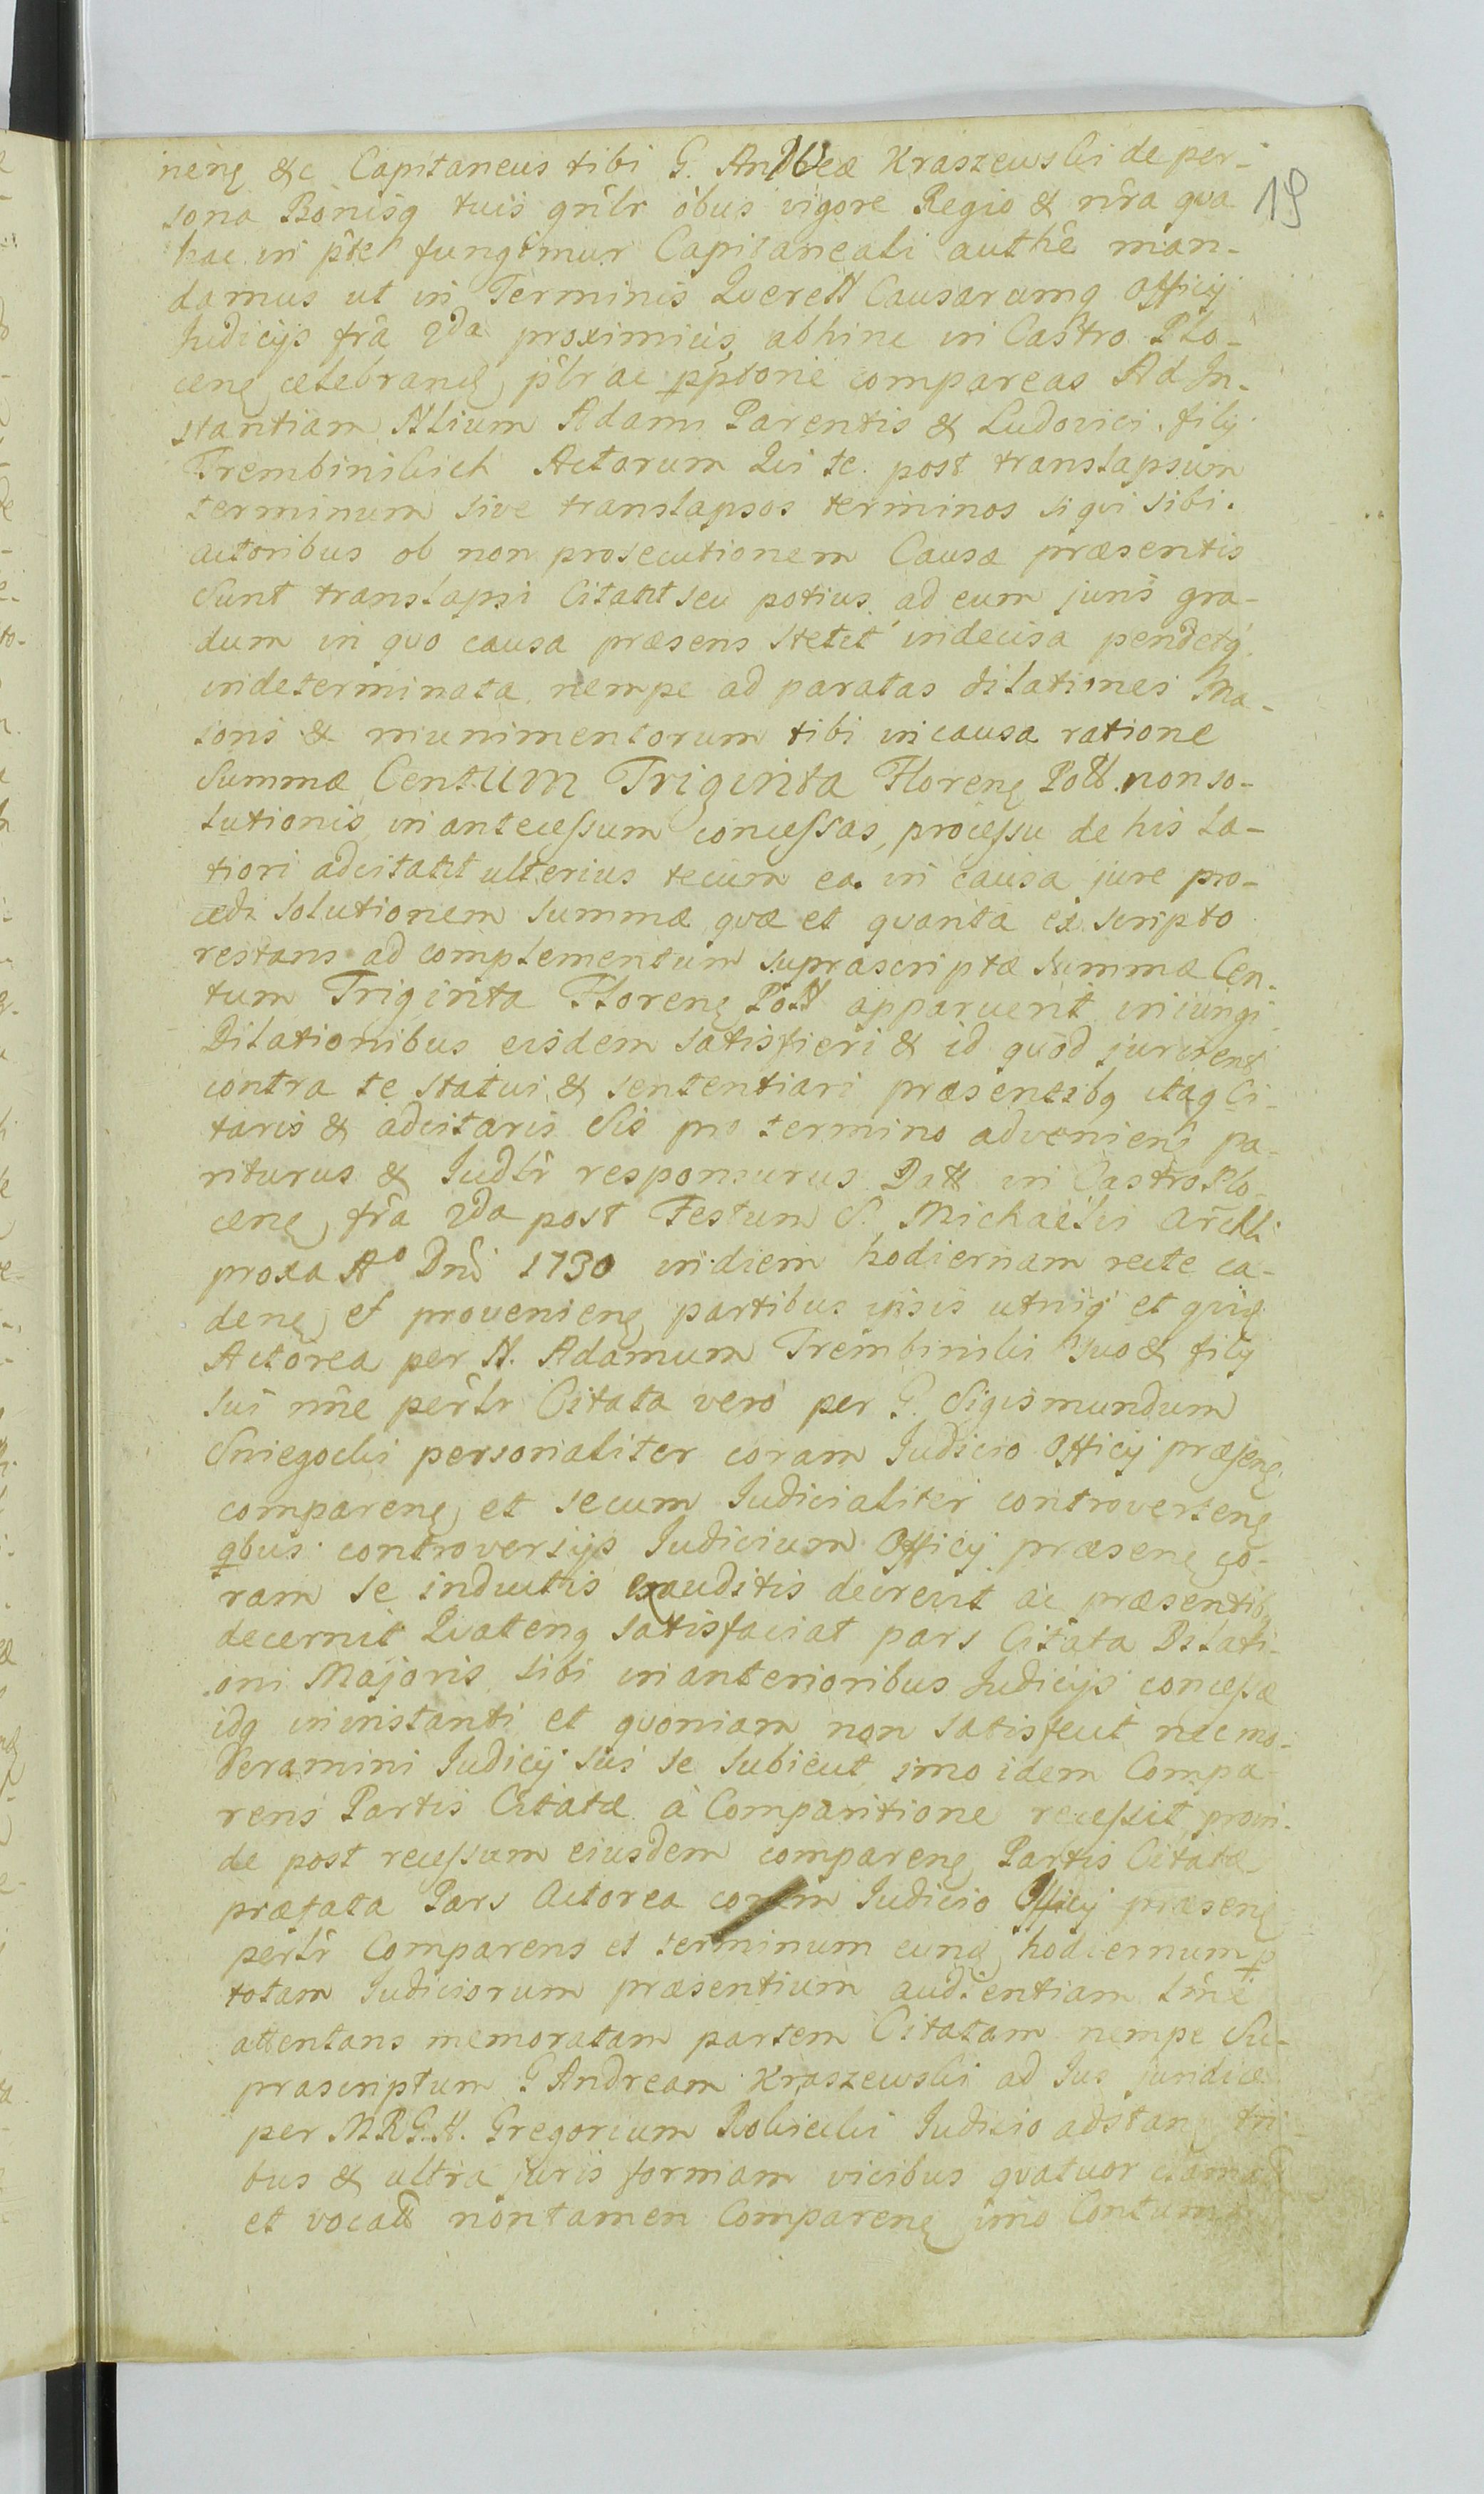 neng &c Capitaneus tibi G. Andreæ Kraszewski de per-
sona Bonisq tuis gnlr obus vigore Regio & nra qva
19
hac in pte fungimur Capitaneali authe man-
damus ut in Terminis Qverell Causarumq Officij
Judicijs fra 2da proximius abhinc in Castro Plo-
ceng celebrang plr ac pptorie compareas Ad In-
stantiam Nlium Adami Parentis & Ludovici filij
Trembinskich Actorum Qvi te post translapsum
terminum sive translapsos terminos siqvi sibi
actoribus ob non prosecutionem Causæ præsentis
Sunt translapsi Citatt seu potius ad eum juris gra-
dum in qvo causa præsens stetit indecisa pendetq
indeterminata nempe ad paratas dilationes Ma-
ioris & munimentorum tibi in causa ratione
Summæ Centum Triginta Floreng Poll. non so-
lutionis in antecessum concessas, processu de his la-
tiori adcitatt ulterius tecum ea in causa jure pro-
cedi solutionem summæ qvæ et qvanta ex scripto
restans ad complementum supra scriptæ summæ Cen-
tum Triginta Floreng Poll apparuerit iniungi
Dilationibus eisdem satisfieri & id quod juris erit
contra te statui & sententiari præsentibq itaq Ci-
taris & adcitaris Sis pro termino advenien pa-
riturus & Judlr responsurus Datt in Castro Plo-
ceng fra 2da post Festum S. Michaelis Archli
proxa Ao Dni 1730 in diem hodiernam recte ca-
deng et provenieng partibus ipsis utrinq et qvidē
Actorea per N. Adamum Trembinski suo & filij
sui nne perlr Citata vero per G. Sigismundum
Sniegocki personaliter coram Judicio Officij præseng
compareng et secum Judicialiter controverteng
qbus controversijs Judicium Officij præseng co-
ram se inductis exauditis decrevit ac præsentibq
decernit Qvateng satisfaciat pars Citata Dilati-
oni Majoris sibi in anterioribus Judicijs concessæ
idq in instanti et qvoniam non satisfecit nec mo-
deramini Judicij sui se subiecit imo idem Compa-
rens Partis Citatæ à Comparitione recessit proin-
de post recessum eiusdem compareng Partis Citatæ
præfata Pars Actorea coram Judicio Officij præseng
perlr Comparens et terminum eunq hodiernum p
totam Judiciorum præsentium audientiam lme
attentans memoratam partem Citatam nempe Su-
prascriptum G Andream Kraszewski ad Jus juridice
per MRGN. Gregorium Robicki Judicio adstang tri-
bus & ultra juris formam vicibus qvatuor clamatt
et vocatt non tamen Compareng imo Contum